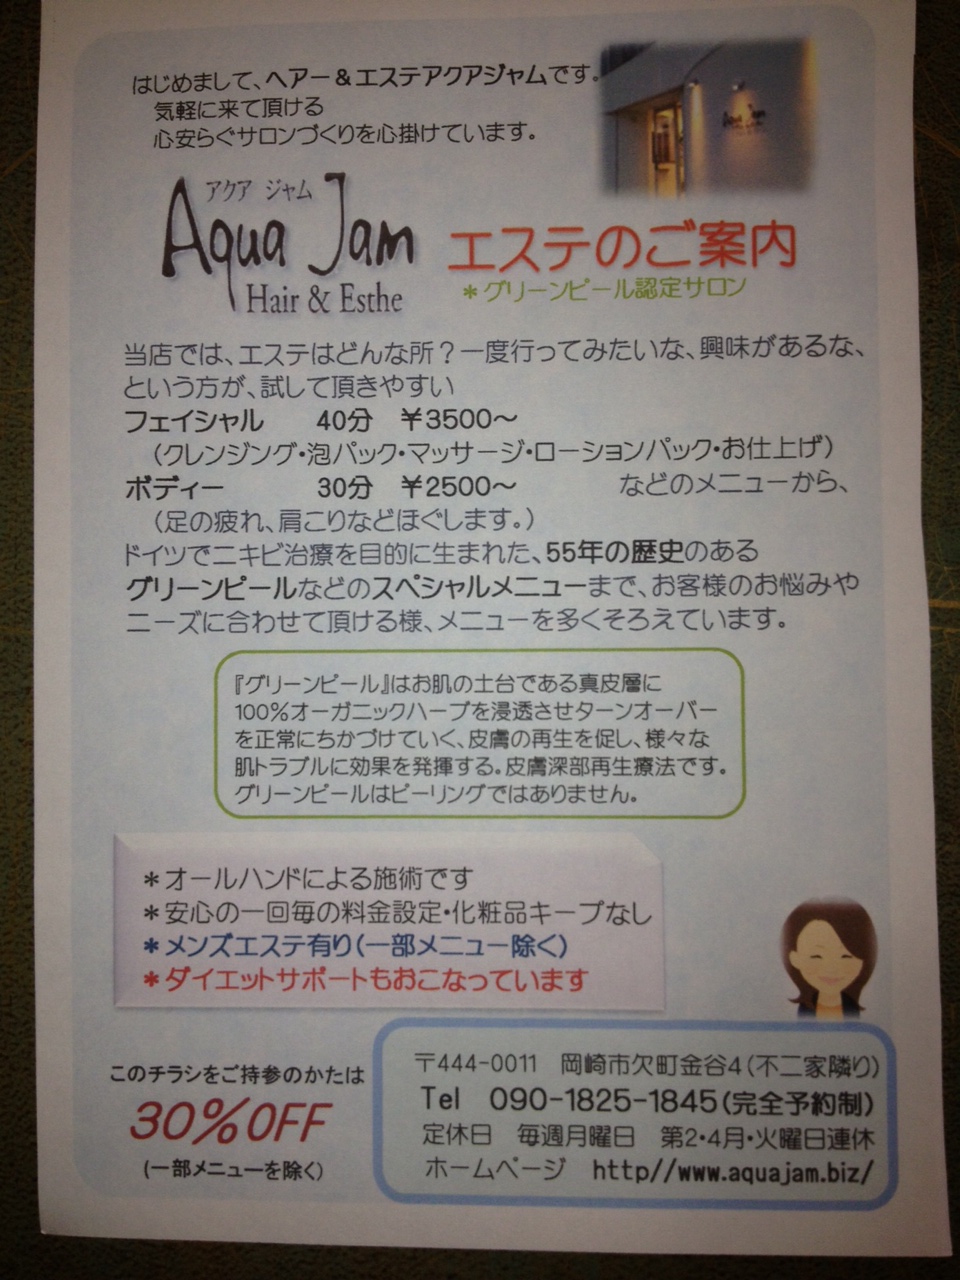 はじめまして、ヘアー＆エステアクアジャムです。
気軽に来て頂ける
心安らぐサロンづくりを心掛けています。
Aqua Jam
アクア ジャム
Aqua Jam
Hair & Esthe
エステのご案内
＊グリーンピール認定サロン
当店では、エステはどんな所？一度行ってみたいな、興味があるな、
という方が、試して頂きやすい
フェイシャル 40分 ￥3500～
（クレンジング・泡パック・マッサージ・ローションパック・お仕上げ）
ボディー 30分 ￥2500～ などのメニューから、
（足の疲れ、肩こりなどほぐします。）
ドイツでニキビ治療を目的に生まれた、55年の歴史のある
グリーンピールなどのスペシャルメニューまで、お客様のお悩みや
ニーズに合わせて頂ける様、メニューを多くそろえています。
『グリーンピール』はお肌の土台である真皮層に
100％オーガニックハーブを浸透させターンオーバー
を正常にちかづけていく、皮膚の再生を促し、様々な
肌トラブルに効果を発揮する。皮膚深部再生療法です。
グリーンピールはピーリングではありません。
＊オールハンドによる施術です
＊安心の一回毎の料金設定・化粧品キープなし
＊メンズエステ有り（一部メニュー除く）
＊ダイエットサポートもおこなっています
このチラシをご持参のかたは
30％OFF
（一部メニューを除く）
〒444-0011 岡崎市欠町金谷4（不二家隣り）
Tel 090-1825-1845（完全予約制）
定休日 毎週月曜日 第2・4月・火曜日連休
ホームページ http//www.aquajam.biz/